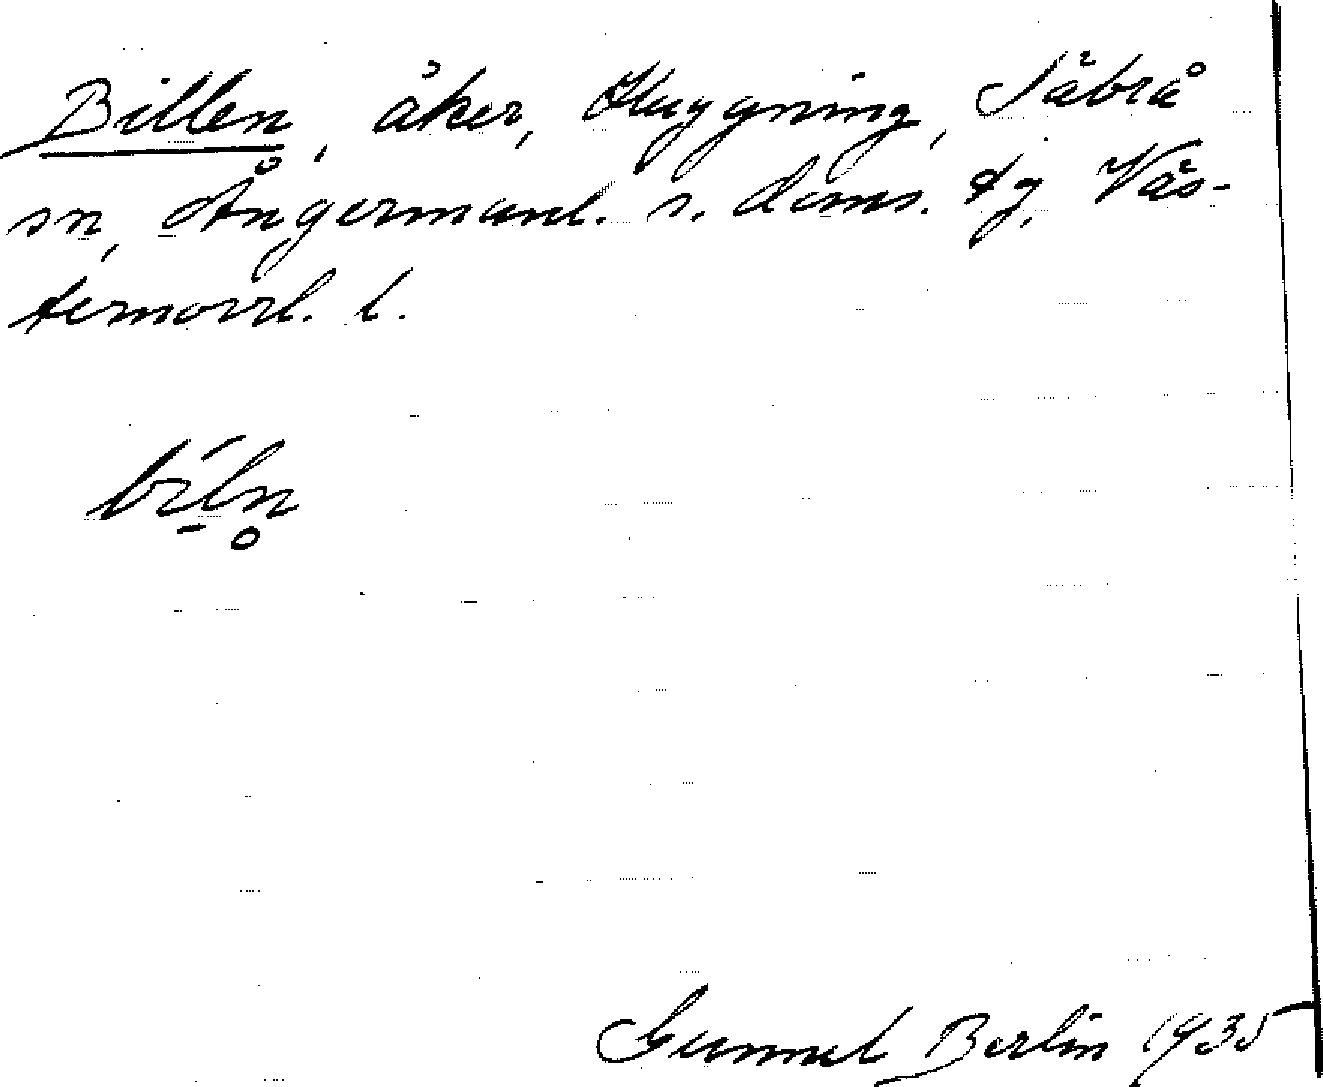 Billen, åker, Huggning, Säbrå
sn, Ångermanl. s. doms. tg, Väs-
ternorrl. l.
bi̱ln̥
Gunnel Berlin 1935